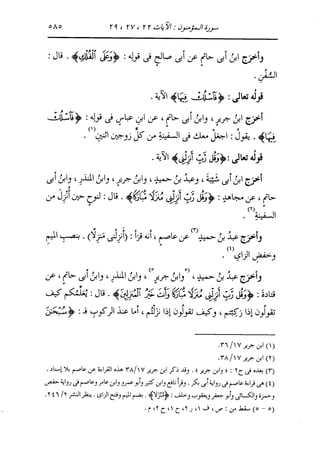 سورة المؤمنون : الآيات ٢٢، ٢٧، ٢٩
٥٨٥
وأخرج ابنُ أبى حاتمٍ عن أبى صالحٍ فى قولِه : ﴿وَعَلَى ٱلْفُلْكِ﴾ . قال :
السُّفُنِ .
قولُه تعالى : ﴿فَٱسْلُكْ فِيهَا﴾ الآية .
أخرَج ابنُ جريرٍ ، وابنُ أبى حاتمٍ ، عن ابنِ عباسٍ فى قولِه : ﴿فَٱسْلُكْ
فِيهَا﴾ . يقولُ : اجعلْ معك فى السفينةِ من كلٍّ زوجين اثنين(١) .
قولُه تعالى : ﴿وَقُل رَّبِّ أَنزِلْنِى﴾ الآية .
أخرَج ابنُ أبى شيبةَ ، وعبدُ بنُ حميدٍ ، وابنُ جريرٍ ، وابنُ المنذرِ ، وابنُ أبى
حاتمٍ ، عن مجاهدٍ : ﴿وَقُل رَّبِّ أَنزِلْنِى مُنزَلًا مُّبَارَكًا﴾ . قال : لنوحٍ حينَ أُنزِل من
السفينةِ(٢) .
وأخرَج عبدُ بنُ حميدٍ(٣) عن عاصمٍ ، أنه قرَأ : (أنزلنى مَنزِلًا) . بنصبِ الميمِ
وخفضِ الزاى(٤) .
وأخرَج عبدُ بنُ حميدٍ ، (٥وابنُ جريرٍ٥) ، وابنُ المنذرِ ، وابنُ أبى حاتمٍ ، عن
قتادةَ : ﴿وَقُل رَّبِّ أَنزِلْنِى مُنزَلًا مُّبَارَكًا وَأَنتَ خَيْرُ ٱلْمُنزِلِينَ﴾ . قال : يُعلِّمُكم كيف
تقولون إذا ركِبْتُم ، وكيف تقولون إذا نزَلْتُم ، أما عندَ الركوبِ فـ : ﴿سُبْحَٰنَ
(١) ابن جرير ١٧/ ٣٦.
(٢) ابن جرير ١٧/ ٣٨.
(٣) بعده فى ح٢ : « وابن جرير » . وقد ذكر ابن جرير ١٧/ ٣٨ هذه القراءة عن عاصم بلا إسناد .
(٤) هى قراءة عاصم فى رواية أبى بكر . وقرأ نافع وابن كثير وأبو عمرو وابن عامر وعاصم فى رواية حفص
وحمزة والكسائى وأبو جعفر ويعقوب وخلف : ﴿مُنزَلًا﴾ . بضم الميم وفتح الزاى . ينظر النشر ٢/ ٢٤٦.
(٥ - ٥) سقط من : ص ، ف ١، ر ٢، ح ١، ح ٢، م .